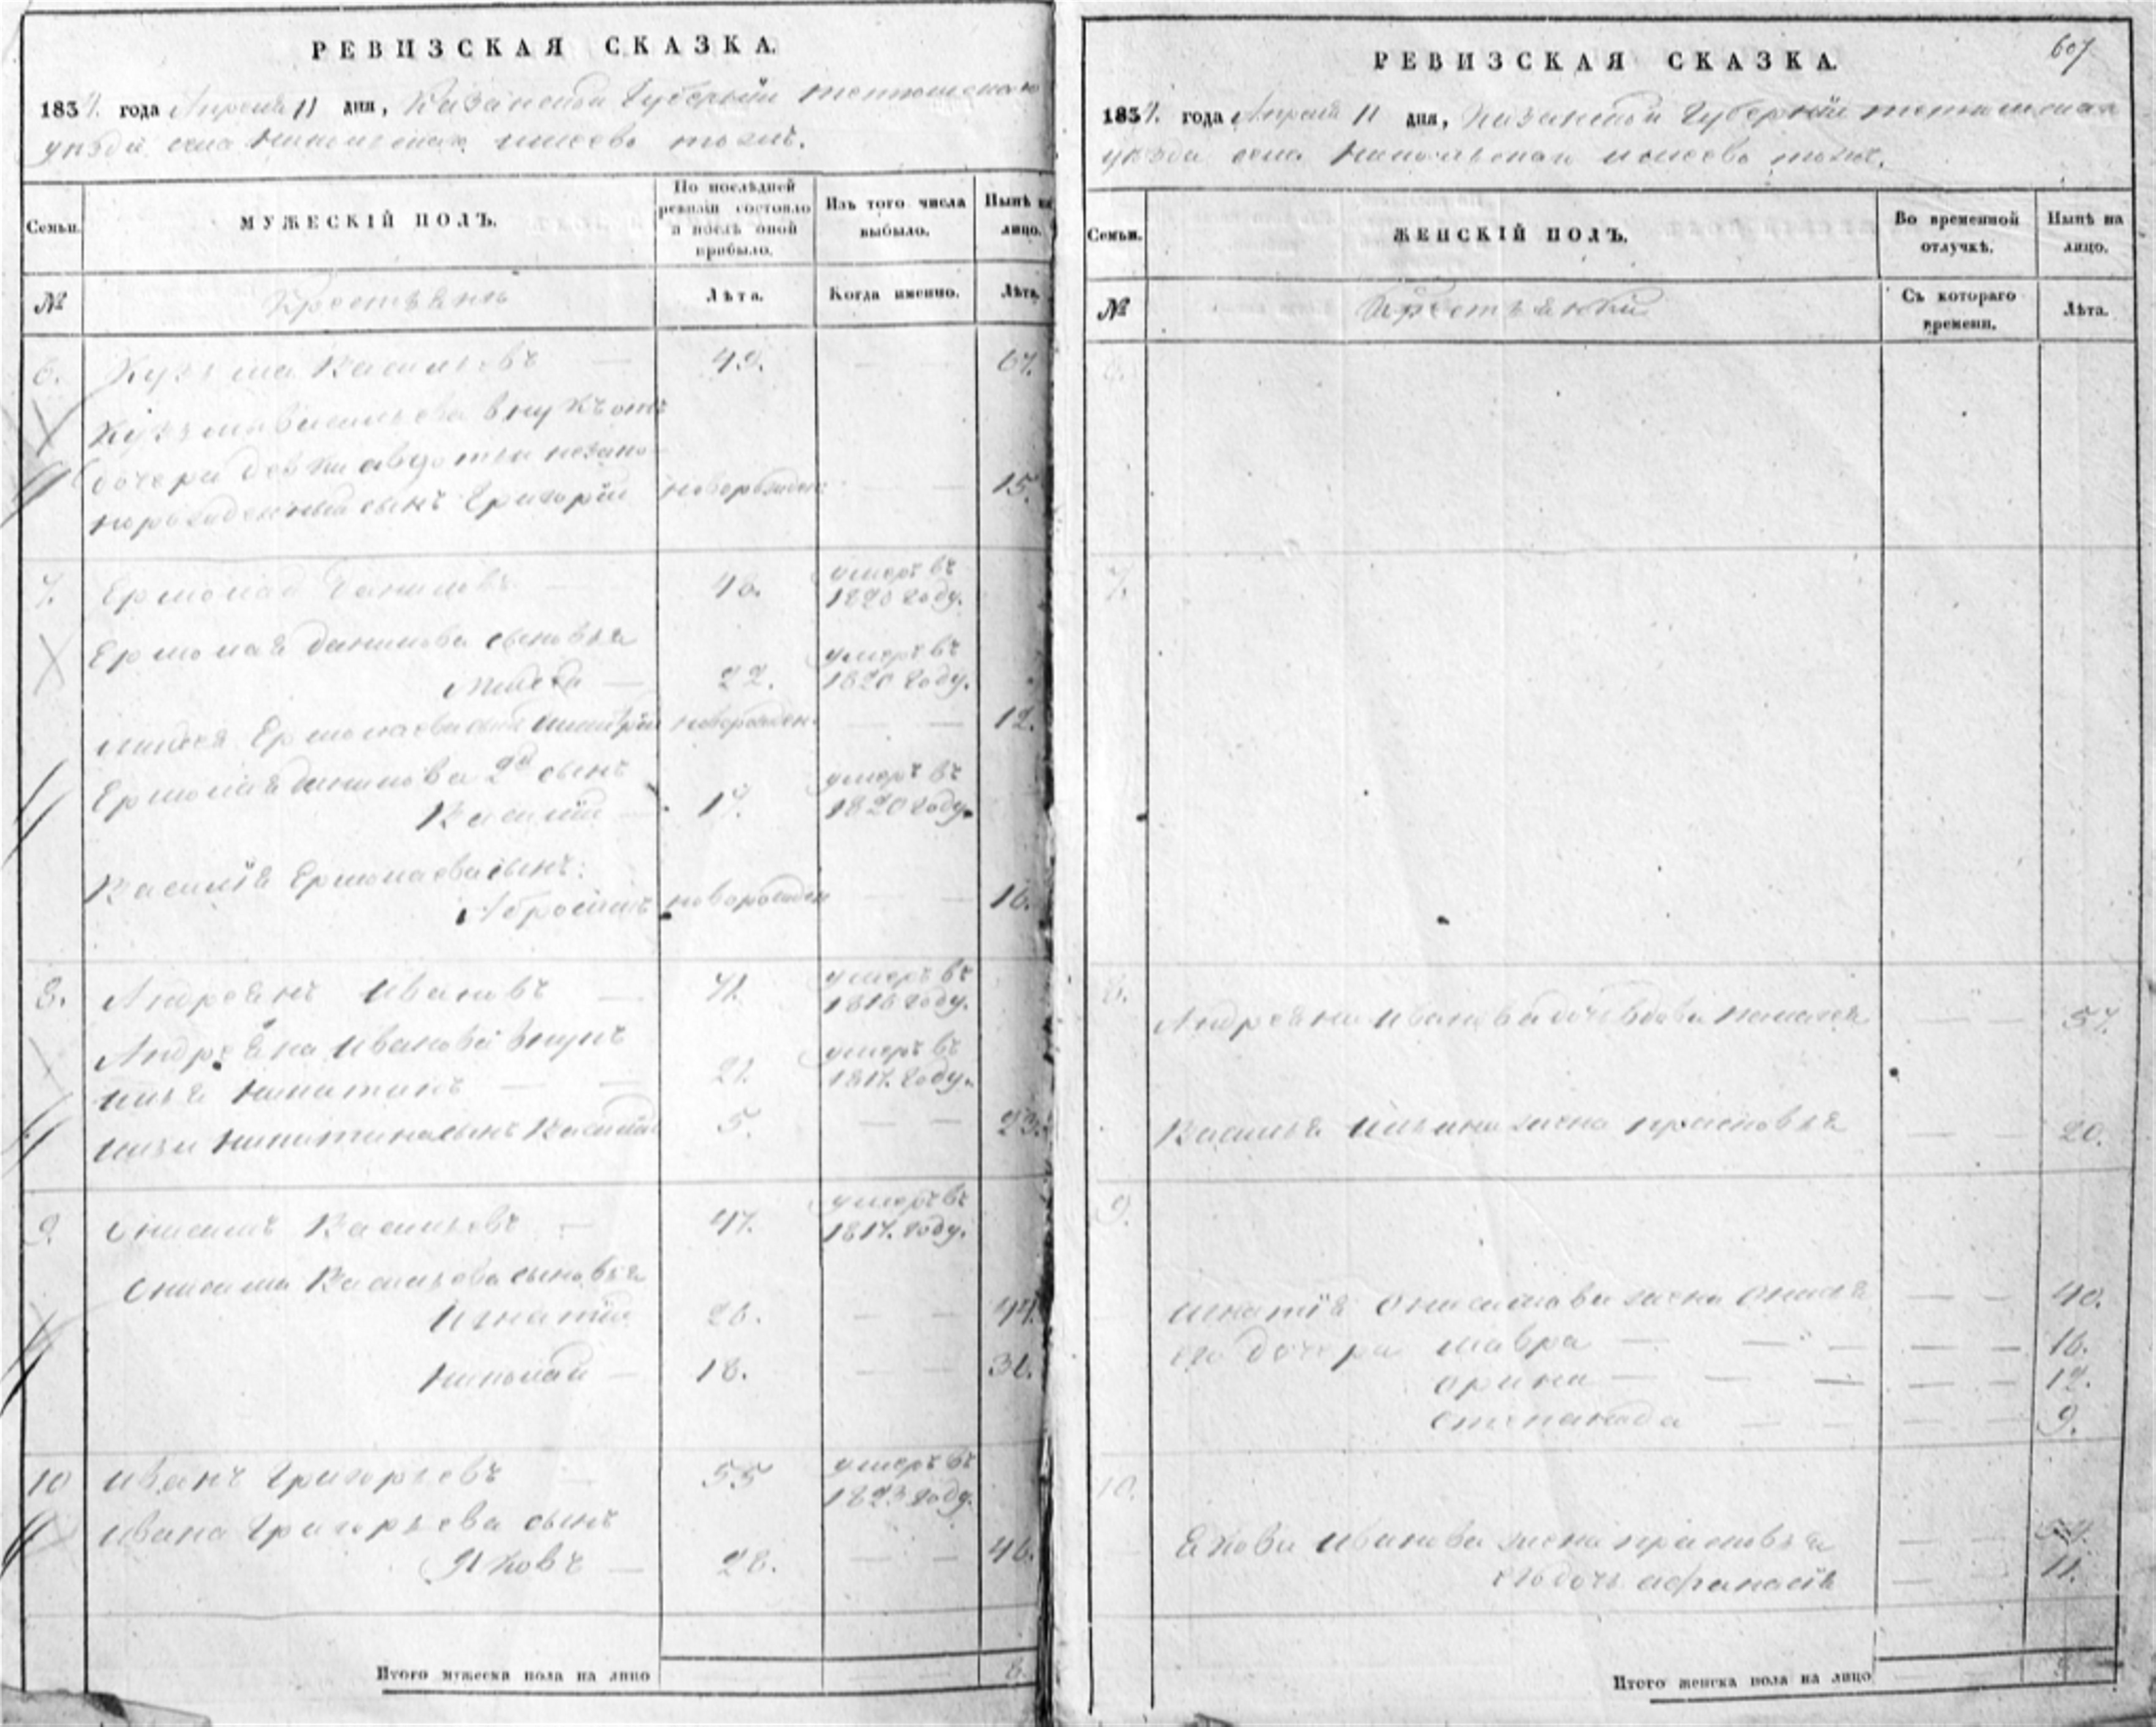 РЕВИЗСКАЯ СКАЗКА.
1834. года Апреля 11 дня, Казанской Губернiи тетюшскаго
уезда села Никольскаго тожъ.
Семьи. МУЖЕСКIЙ ПОЛЪ. По послѣдней ревизiи состояло и послѣ оной прибыло. Изъ того числа выбыло. Нынѣ на лицо.
№ Крестьянъ Лѣта. Когда именно. Лѣта.
6. Кузьма Васильевъ — 49. — — 67.
Кузьмы Васильева внукъ отъ
дочери девки авдотьи незако-
норожденный сынъ Григорiй новорожден: — — 15.
7. Ермолай Даниловъ — 46. умеръ въ 1820 году.
Ермолая данилова сыновья
22. умеръ въ 1820 году.
Ермолаева сынъ новорожден. — — 12.
Ермолая данилова 2й сынъ
Василiй — 17. умеръ въ 1820 году.
Василiя Ермолаева сынъ:
Абросимъ новорожден — — 16.
8. Андреянъ Ивановъ — 71. умеръ въ 1816 году.
Андреяна Иванова внукъ
илья никитинъ — — 21. умеръ въ 1817. году.
ильи никитина сынъ Василiй 5. — — 23.
9. Онисимъ Васильевъ — 47. умеръ въ 1817. году.
Онисима Васильева сыновья
Игнатiй 26. — — 44.
Николай — 18. — — 36.
10 Иванъ Григорьевъ — 55 умеръ въ 1823 году.
Ивана Григорьева сынъ
Яковъ — 28. — — 46.
Итого мужеска пола на лицо 8.
607
РЕВИЗСКАЯ СКАЗКА.
1834. года Апреля 11 дня, Казанской Губернiи тетюшскаго
уезда села Никольскаго тожъ.
Семьи. ЖЕНСКIЙ ПОЛЪ. Во временной отлучкѣ. Нынѣ на лицо.
№ Крестьянки Съ котораго времени. Лѣта.
6.
7.
8.
Андреяна Иванова вдова — — 57.
Василья ильина жена прасковья — — 20.
9.
игнатiя Онисимова жена — — 40.
его дочери мавра — — — — — 16.
орина — — — — — 12.
степанида — — — — 9.
10.
Якова Иванова жена прасковья — — 54.
его дочь афанасiя — — 11.
Итого женска пола на лицо